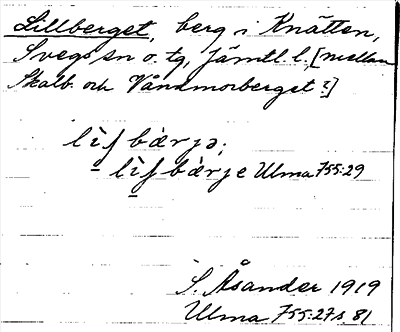 Lillberget, berg i Knätten,
Svegs sn o. tg, Jämtl. l., [mellan
Skalb. och Våndmorberget?]
lìʃ bàrjə;
lìʃ bàrje Ulma 755:29
S. Åsander 1919
Ulma 755:27 s 81